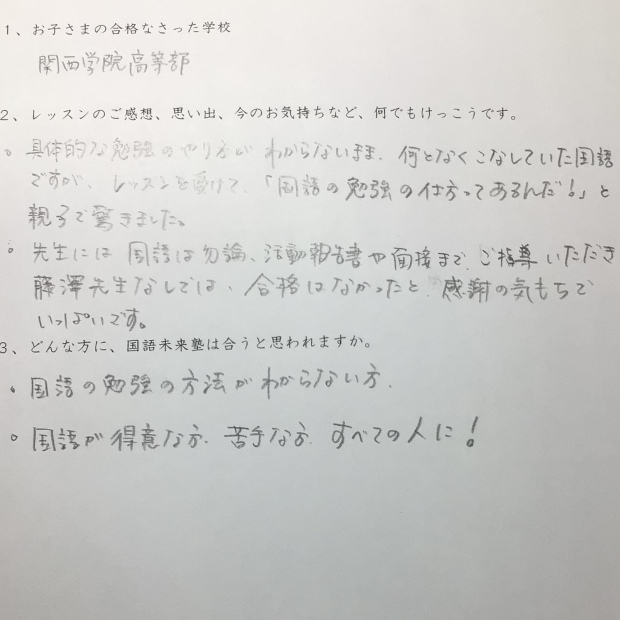 1、お子さまの合格なさった学校
関西学院高等部
2、レッスンのご感想、思い出、今のお気持ちなど、何でもけっこうです。
。具体的な勉強のやり方がわからないまま、何となくこなしていた国語
ですが、レッスンを受けて、「国語の勉強の仕方ってあるんだ!」と
親子で驚きました。
。先生には国語は勿論、活動報告書や面接まで、ご指導いただき
藤澤先生なしでは、合格はなかったと、感謝の気もちで
いっぱいです。
3、どんな方に、国語未来塾は合うと思われますか。
。国語の勉強の方法がわからない方、
。国語が得意な方、苦手な方、すべての人に!